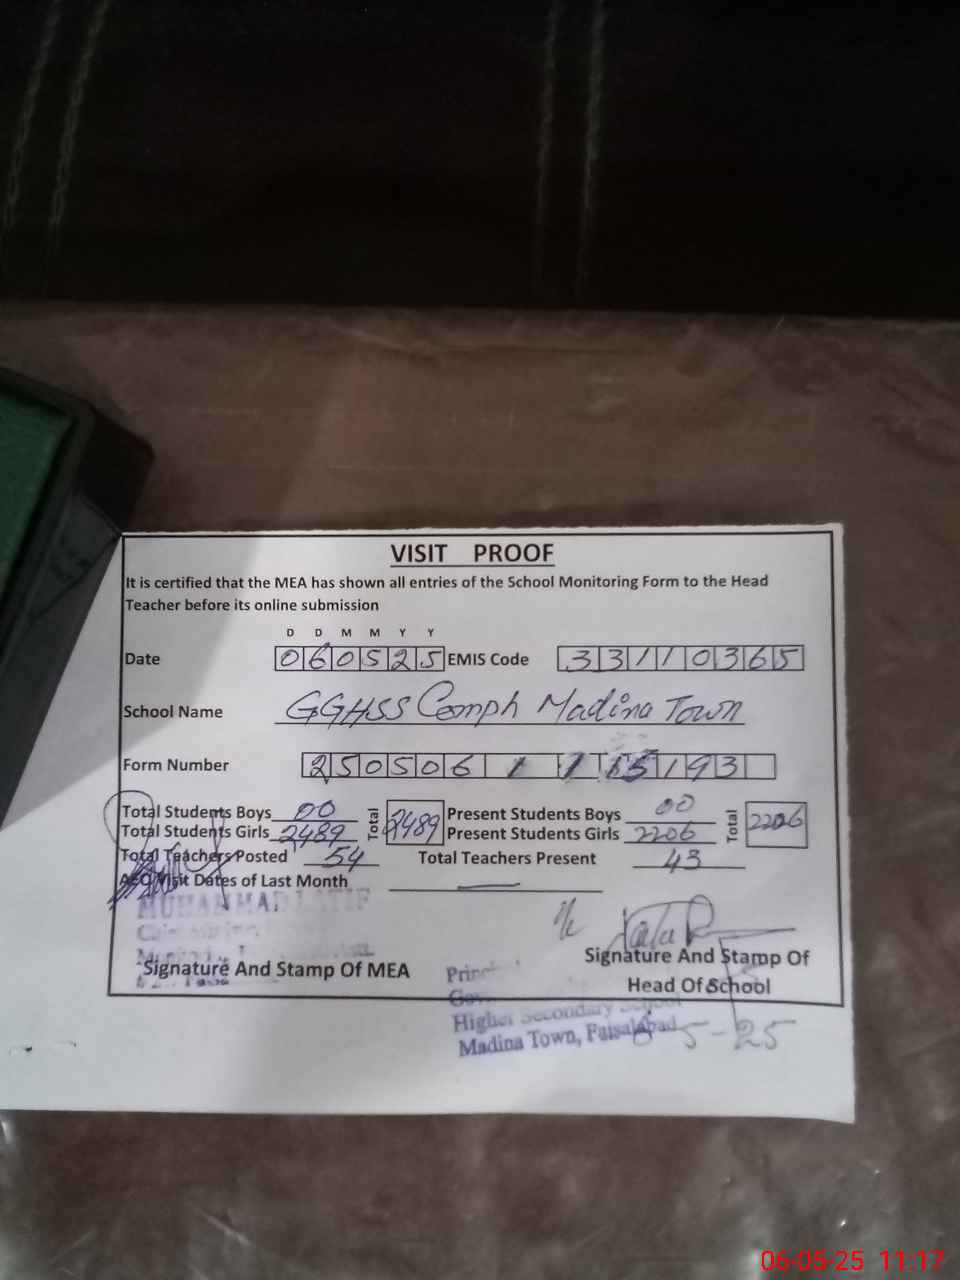 VISIT PROOF
It is certified that the MEA has shown all entries of the School Monitoring Form to the Head
Teacher before its online submission
D D M M Y Y
Date 060525 EMIS Code 33110365
School Name GGHSS Comph Madina Town
Form Number 250506
Total Students Boys 00 Total 2489 Present Students Boys 00 Total 2206
Total Students Girls 2489 Present Students Girls 2206
Total Teachers Posted 54 Total Teachers Present 43
AEO Visit Dates of Last Month —
MUHAMMAD LATIF
Signature And Stamp Of MEA
Signature And Stamp Of
Head Of School
Higher Secondary School
Madina Town, Faisalabad
5-25
06-05-25 11:17